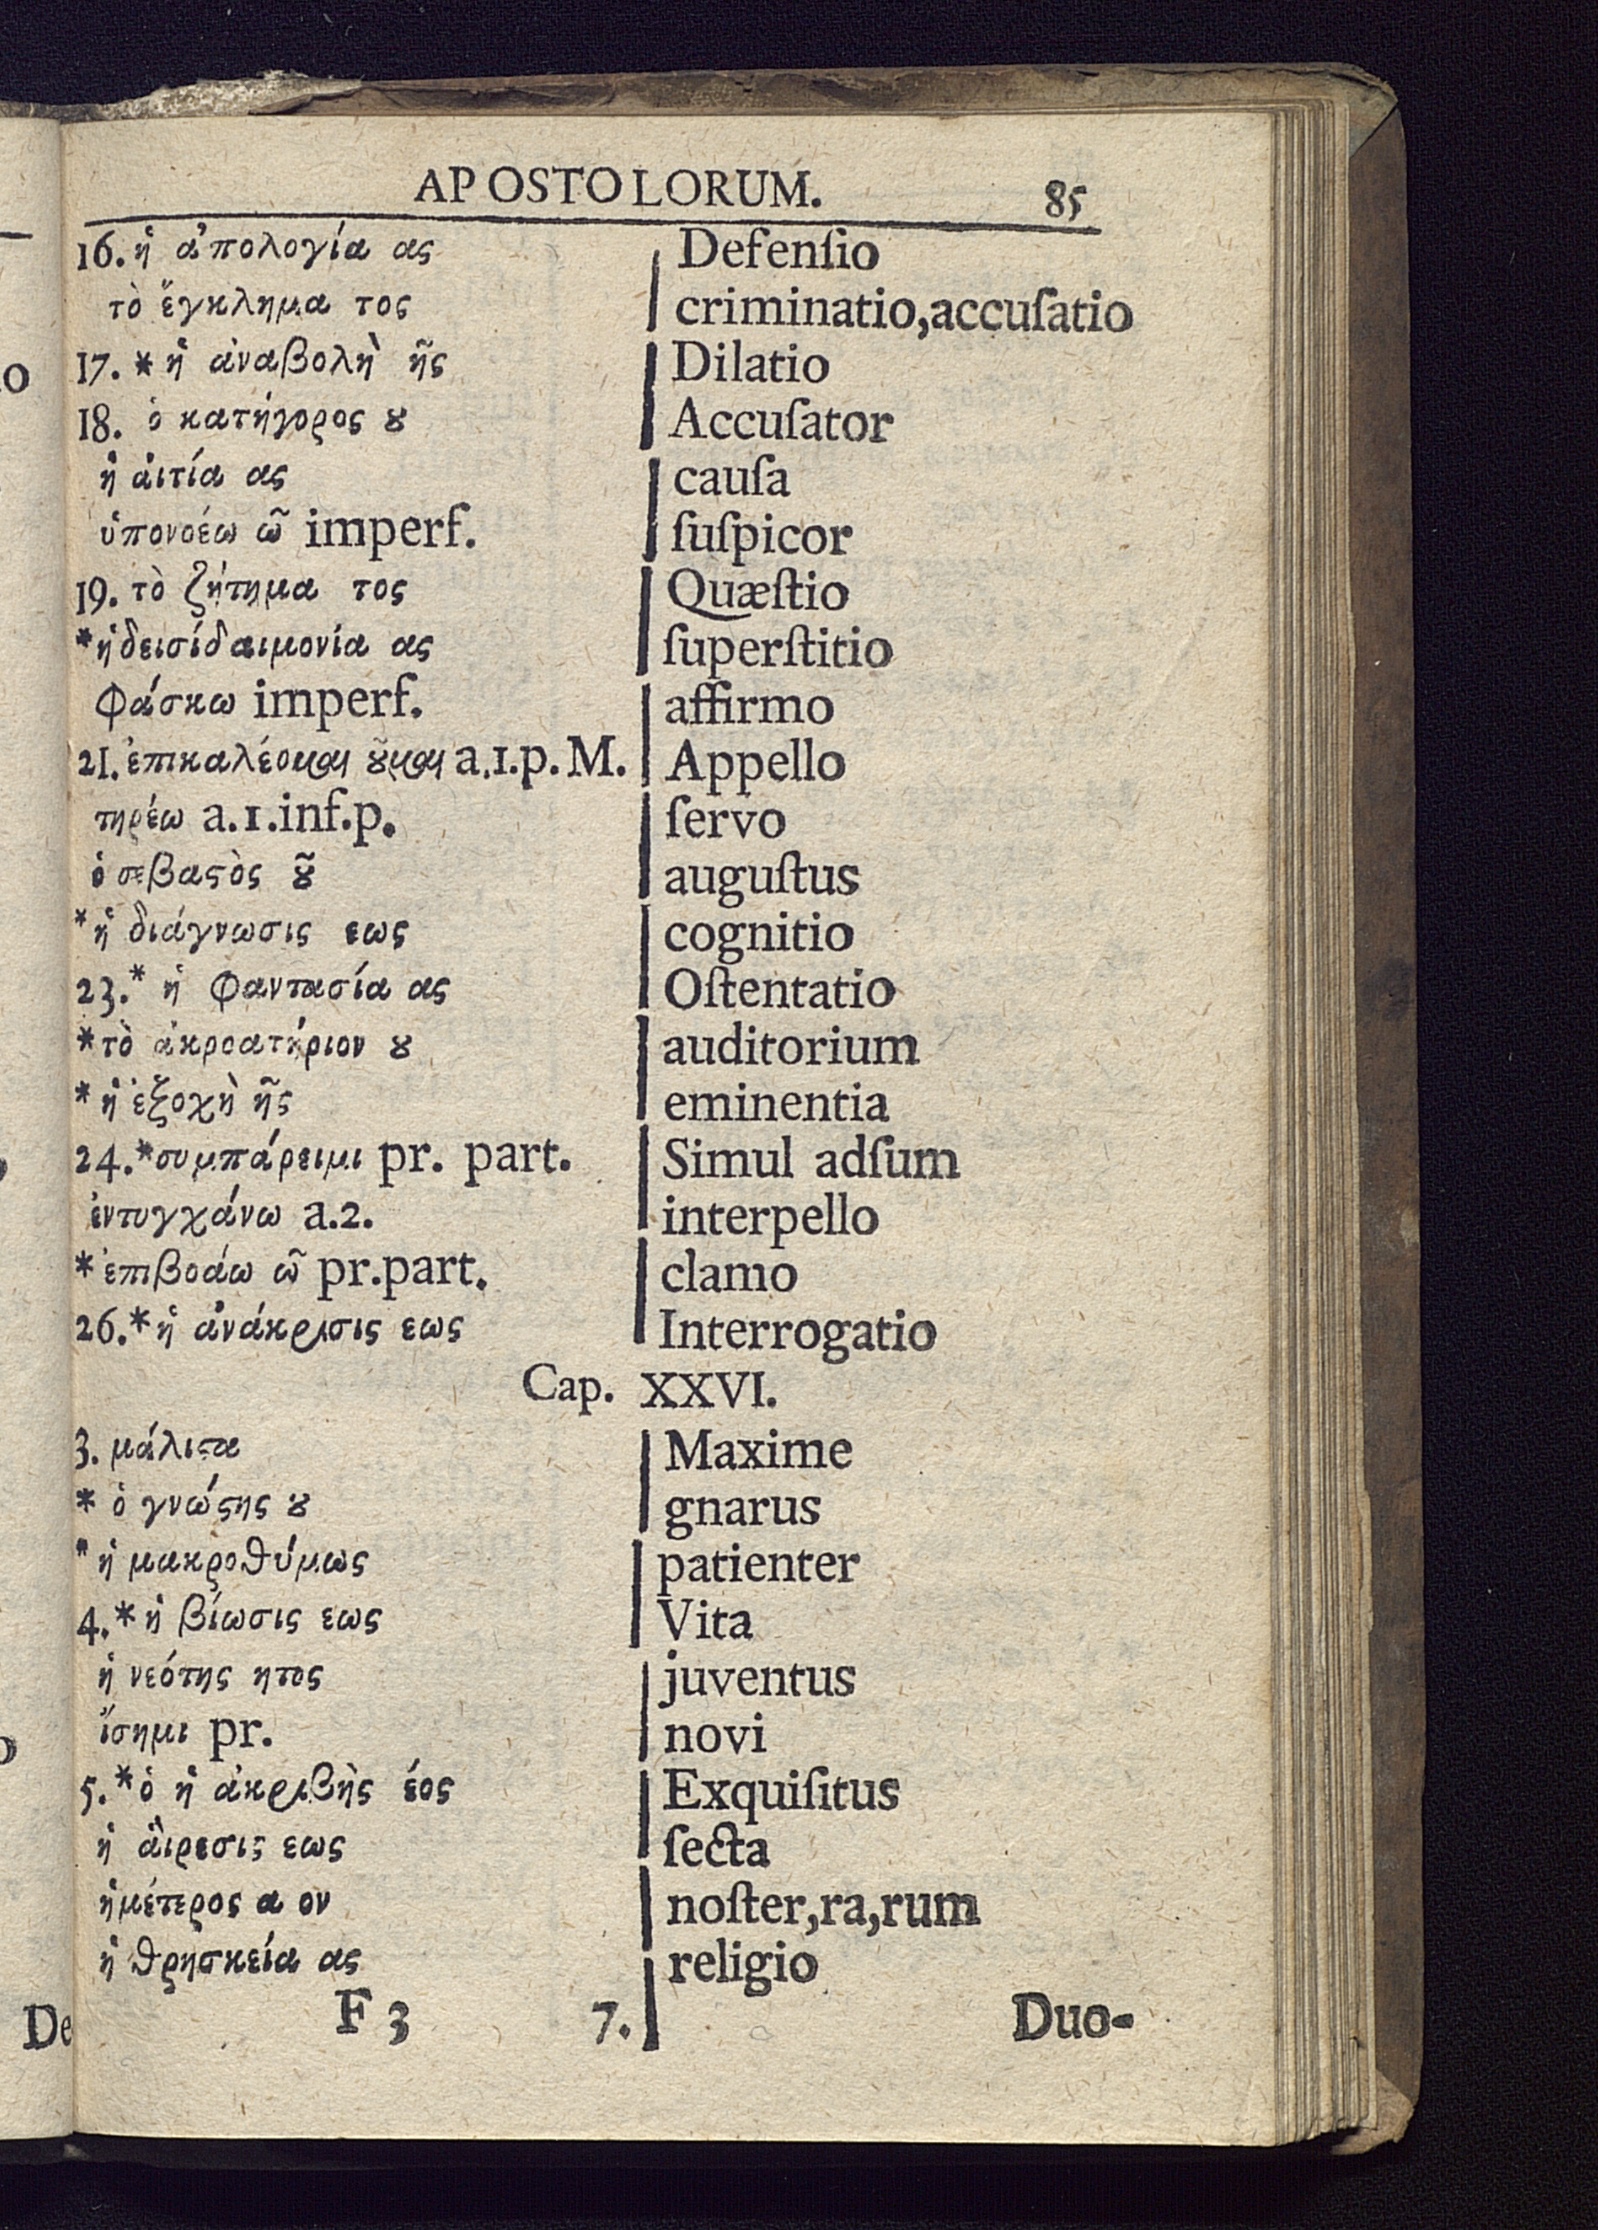 APOSTOLORUM. 85
16. ἡ ἀπολογία ας Defenſio
τὸ ἔγκλημα τος criminatio,accuſatio
17. * ἡ ἀναβολὴ ῆς Dilatio
18. ὁ κατήγορος ȣ Accuſator
ἡ ἀιτία ας cauſa
ὑπονοέω ῶ imperf. ſuſpicor
19. τὸ ζήτημα τος Quæſtio
* ἡ δεισίδαιμονία ας ſuperſtitio
φάσκω imperf. affirmo
21. ἐπικαλέομαι ȣ͂μαι a.1.p.M. Appello
τηρέω a.1.inf.p. ſervo
ὁ σεβαϛὸς ȣ͂ auguſtus
* ἡ διάγνωσις εως cognitio
23.* ἡ φαντασία ας Oſtentatio
* τὸ ἀκροατήριον ȣ auditorium
* ἡ ἐξοχὴ ῆς eminentia
24.*συμπάρειμι pr. part. Simul adſum
ἐντυγχάνω a.2. interpello
* ἐπιβοάω ῶ pr.part. clamo
26.* ἡ ἀνάκρισις εως Interrogatio
Cap. XXVI.
3. μάλιϛα Maxime
* ὁ γνώϛης ȣ gnarus
* ἡ μακροθύμως patienter
4.* ἡ βίωσις εως Vita
ἡ νεότης ητος juventus
ἴσημι pr. novi
5.* ὁ ἡ ἀκριβὴς έος Exquiſitus
ἡ ἅιρεσις εως ſecta
ἡμέτερος α ον noſter,ra,rum
ἡ θρησκεία ας religio
F 3 7. Duo-
De